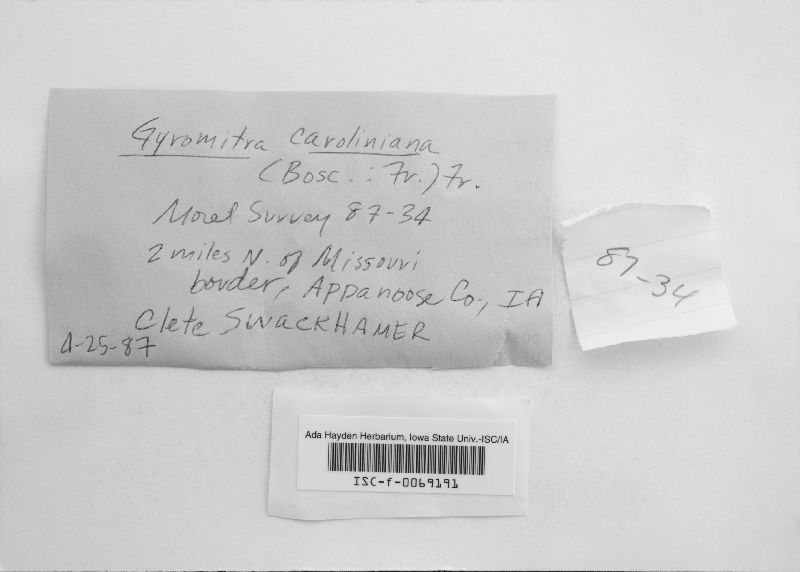 Gyromitra caroliniana
(Bosc. : Fr.) Fr.
Morel Survey 87-34
2 miles N. of Missouri
border, Appanoose Co., IA
Clete SWACKHAMER
4-25-87
87-34
Ada Hayden Herbarium, Iowa State Univ.-ISC/IA
ISC-f-0069191